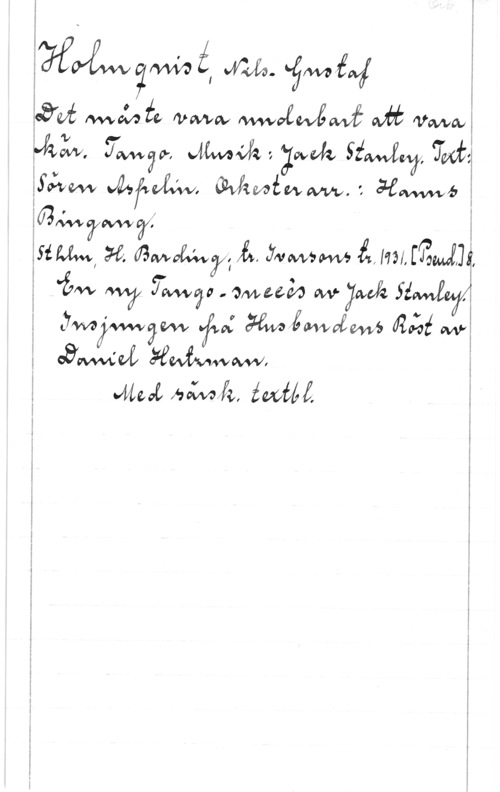 Holmqvist, Nils-Gustaf
Det måste vara underbart att vara
kär. Tango. Musik: Jack Stanley. Text:
Sören Aspelin. Orkesterarr.: Hanns
Bingang.
Sthlm, H. Barding; tr. Ivarsons tr. 1931. [Pseud.] 8.
En ny Tango-succès av Jack Stanley/
Insjungen på Husbondens Röst av
Daniel Hertzman.
Med särsk. textbl.